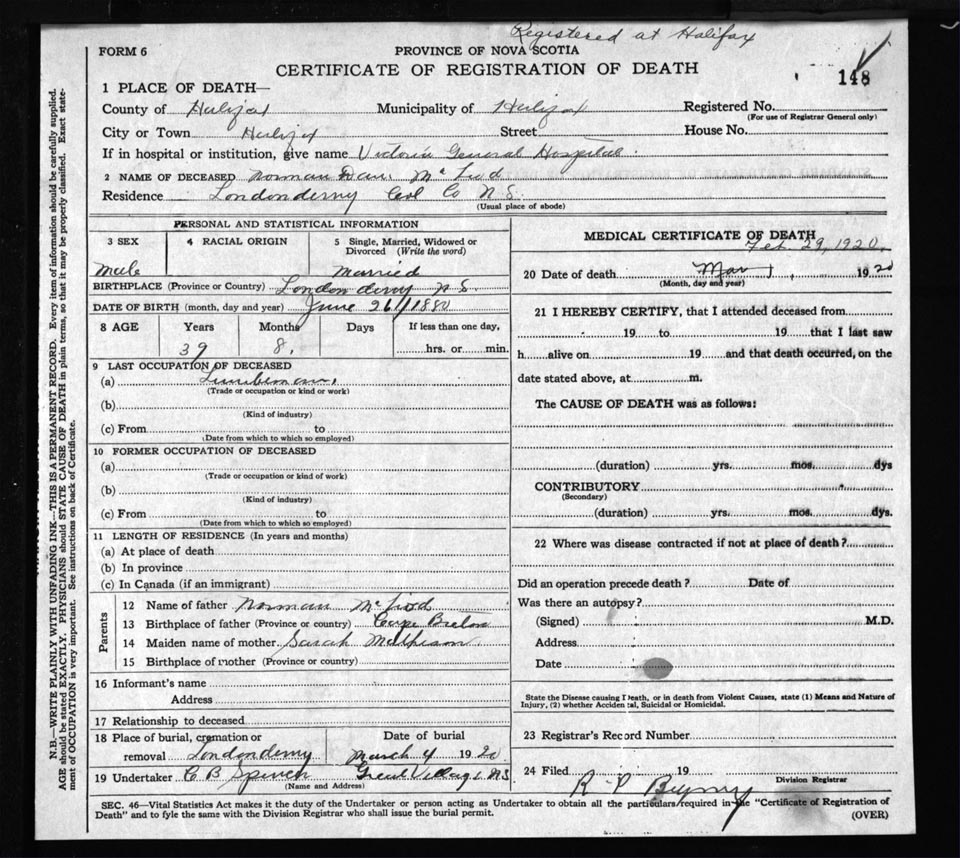 Registered at Halifax
FORM 6
PROVINCE OF NOVA SCOTIA
CERTIFICATE OF REGISTRATION OF DEATH
148
1 PLACE OF DEATH—
County of Halifax Municipality of Halifax Registered No.
(For use of Registrar General only)
City or Town Halifax Street House No.
If in hospital or institution, give name Victoria General Hospital.
2 NAME OF DECEASED Norman Dan. McLeod
Residence Londonderry Col Co N.S.
(Usual place of abode)
PERSONAL AND STATISTICAL INFORMATION
3 SEX 4 RACIAL ORIGIN 5 Single, Married, Widowed or Divorced (Write the word)
Male Married
BIRTHPLACE (Province or Country) Londonderry N.S.
DATE OF BIRTH (month, day and year) June 26/1880
8 AGE Years Months Days If less than one day,
39 8. hrs. or min.
9 LAST OCCUPATION OF DECEASED
(a) Lumberman.
(Trade or occupation or kind or work)
(b)
(Kind of industry)
(c) From to
(Date from which to which so employed)
10 FORMER OCCUPATION OF DECEASED
(a)
(Trade or occupation or kind of work)
(b)
(Kind of industry)
(c) From to
(Date from which to which so employed)
11 LENGTH OF RESIDENCE (In years and months)
(a) At place of death
(b) In province
(c) In Canada (if an immigrant)
Parents
12 Name of father Norman McLeod
13 Birthplace of father (Province or country) Cape Breton
14 Maiden name of mother Sarah Matheson
15 Birthplace of mother (Province or country)
16 Informant's name
Address
17 Relationship to deceased
18 Place of burial, cremation or removal Londonderry Date of burial March 4 1920
19 Undertaker C B Spencer Great Village N.S.
(Name and Address)
MEDICAL CERTIFICATE OF DEATH
Feb. 29, 1920.
20 Date of death Mar 1, 1920
(Month, day and year)
21 I HEREBY CERTIFY, that I attended deceased from
19 to 19 that I last saw
h alive on 19 and that death occurred, on the
date stated above, at m.
The CAUSE OF DEATH was as follows:
(duration) yrs. mos. dys
CONTRIBUTORY
(Secondary)
(duration) yrs. mos. dys.
22 Where was disease contracted if not at place of death?
Did an operation precede death? Date of
Was there an autopsy?
(Signed) M.D.
Address
Date
State the Disease causing Death, or in death from Violent Causes, state (1) Means and Nature of
Injury, (2) whether Accidental, Suicidal or Homicidal.
23 Registrar's Record Number
24 Filed 19
Division Registrar
R. P.
SEC. 46—Vital Statistics Act makes it the duty of the Undertaker or person acting as Undertaker to obtain all the particulars required in the "Certificate of Registration of
Death" and to fyle the same with the Division Registrar who shall issue the burial permit.
(OVER)
N.B.—WRITE PLAINLY WITH UNFADING INK—THIS IS A PERMANENT RECORD. Every item of information should be carefully supplied.
AGE should be stated EXACTLY. PHYSICIANS should STATE CAUSE OF DEATH in plain terms, so that it may be properly classified. Exact state-
ment of OCCUPATION is very important. See instructions on back of Certificate.